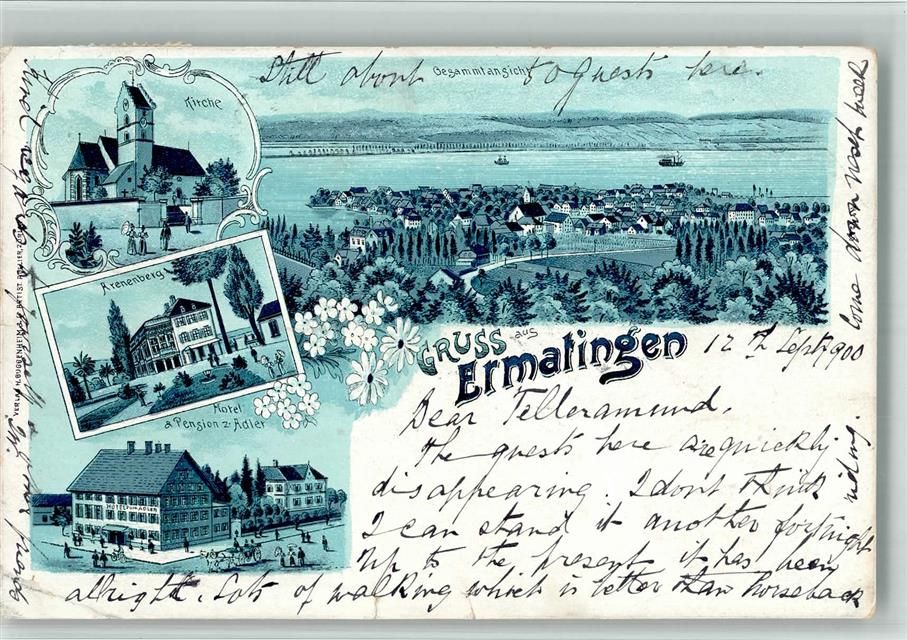 Still about Gesammtansicht 70 guests here.
Kirche
Arenenberg
Hotel
& Pension z. Adler
HOTEL ZUM ADLER
GRUSS aus
Ermatingen
12th Sept 1900
Dear Telleramund,
The guests here are quickly
disappearing. I dont think
I can stand it another fortnight
Up to the present it has been
alright. Lots of walking which is better than horseback
riding.
come down next week